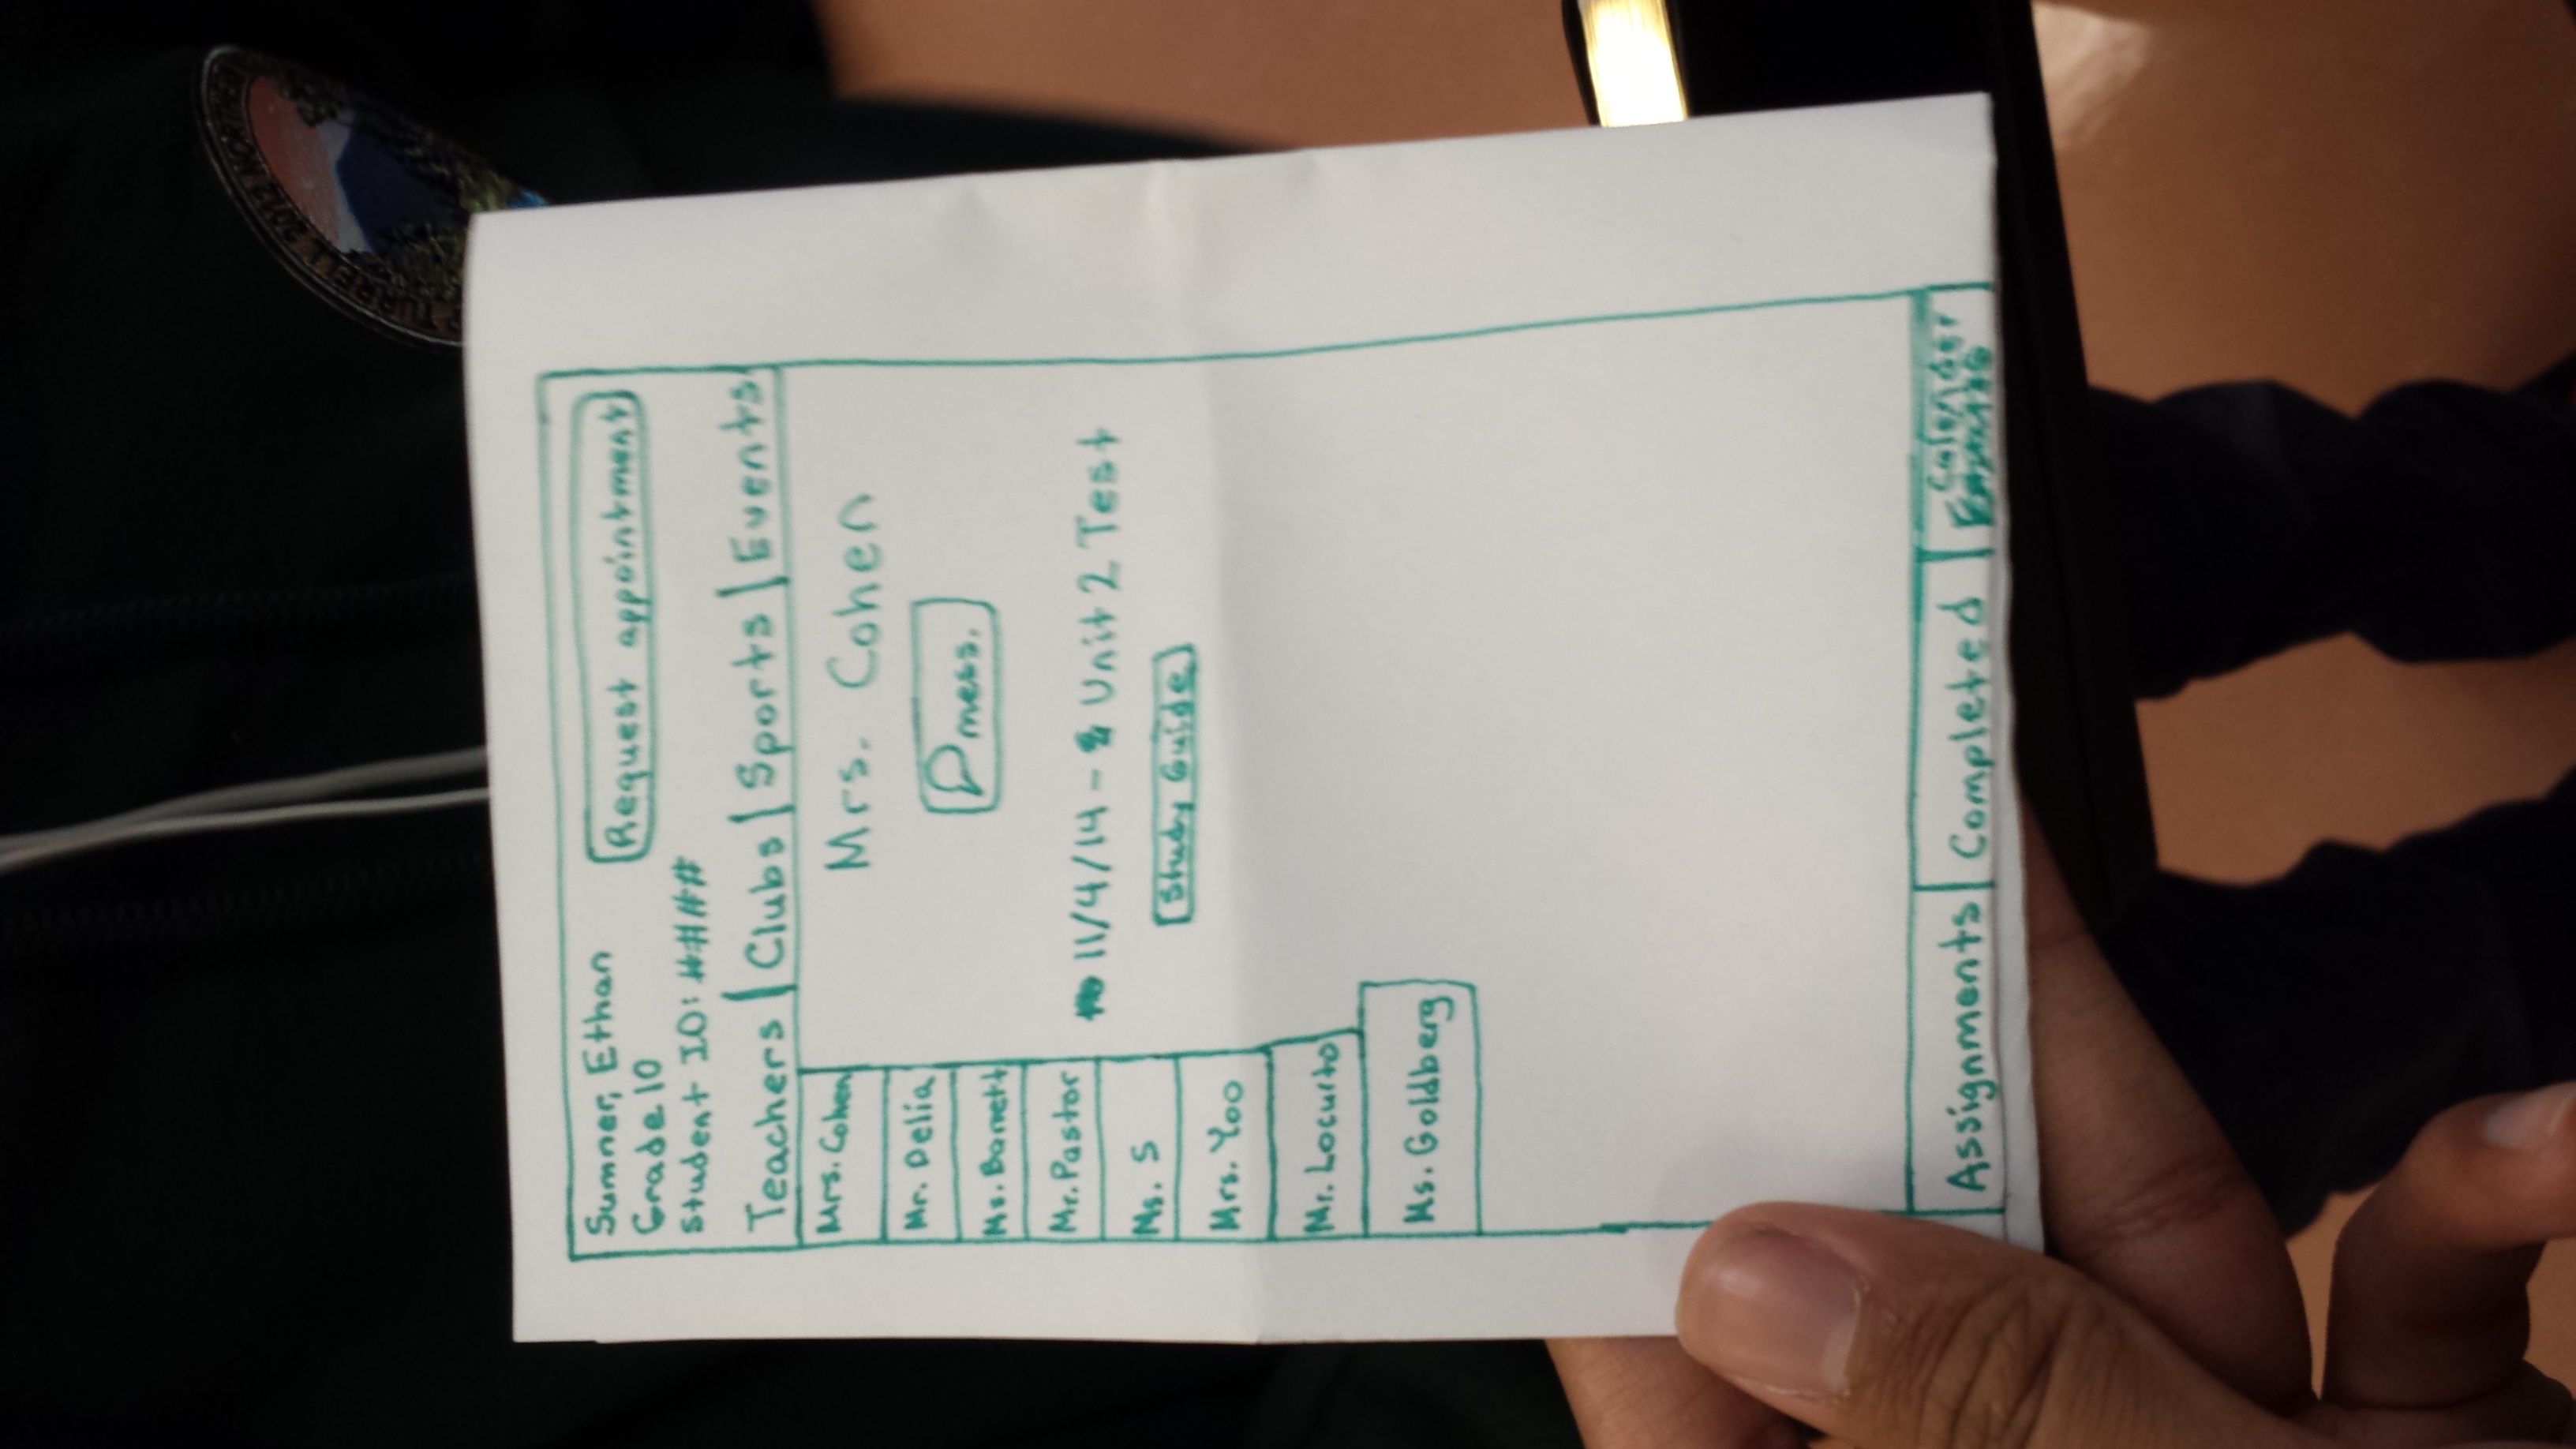 TURRELL 2012 NORTHER
Sumner, Ethan
Request appointment
Grade 10
Student ID: ####
Teachers | Clubs | Sports | Events
Mrs. Cohen
Mr. Delia
Ms. Barrett
Mr. Pastor
Ms. S
Mrs. Yoo
Mr. Locurto
Ms. Goldberg
Mrs. Cohen
mess.
11/4/14 - Unit 2 Test
Study Guide
Assignments
Completed
Calender